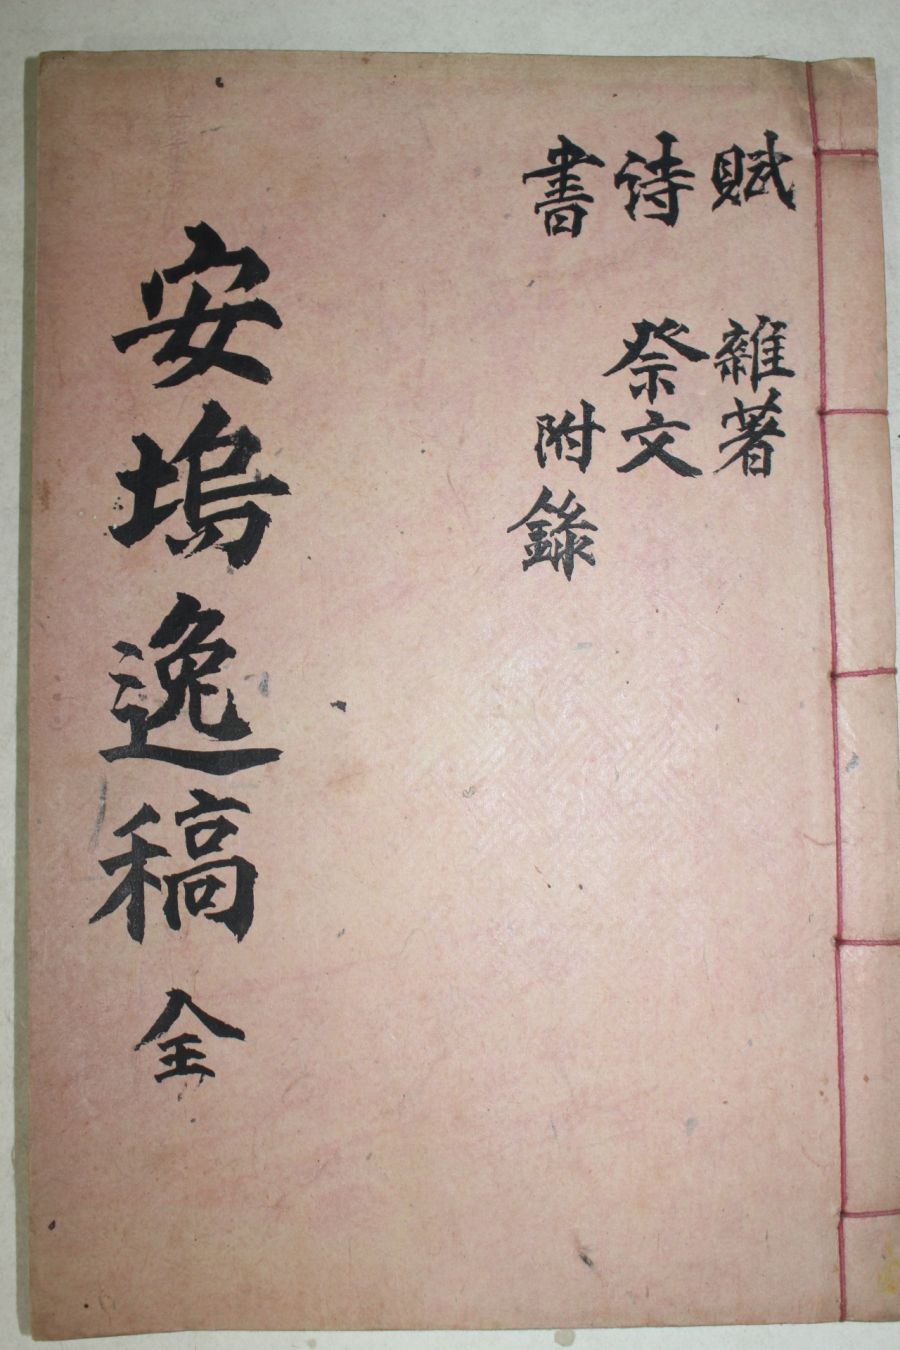 賦 雜著
詩 祭文
書 附錄
安塢逸稿 全